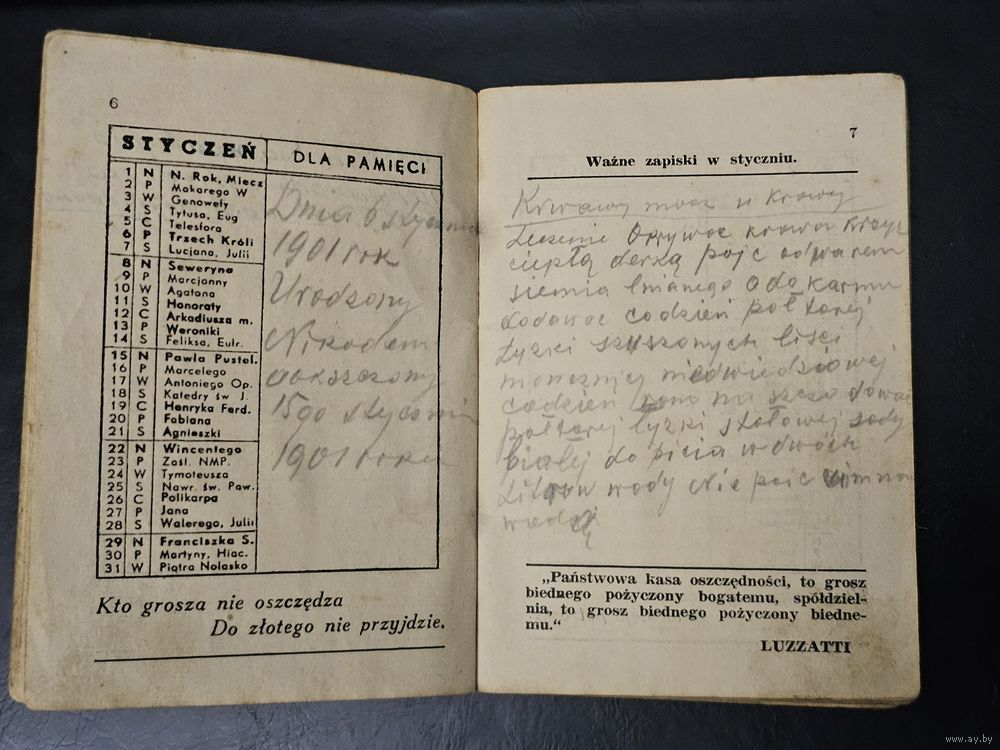 6
STYCZEŃ
DLA PAMIĘCI
1 N N. Rok, Miecz
2 P Makarego W
3 W Genowefy
4 S Tytusa, Eug
5 C Telesfora
6 P Trzech Króli
7 S Lucjana, Julii
8 N Seweryna
9 P Marcjanny
10 W Agatona
11 S Honoraty
12 C Arkadiusza m.
13 P Weroniki
14 S Feliksa, Eufr.
15 N Pawła Pustel.
16 P Marcelego
17 W Antoniego Op.
18 S Katedry św J.
19 C Henryka Ferd.
20 P Fabiana
21 S Agnieszki
22 N Wincentego
23 P Zaśl. NMP.
24 W Tymoteusza
25 S Nawr. św. Paw.
26 C Polikarpa
27 P Jana
28 S Walerego, Julii
29 N Franciszka S.
30 P Martyny, Hiac.
31 W Piotra Nolasko
Dnia 6 stycznia
1901 rok
Urodzony
Nikodem
15go stycznia
1901 roku
Kto grosza nie oszczędza
Do złotego nie przyjdzie.
7
Ważne zapiski w styczniu.
Krwawy mocz u krowy
Leczenie Okrywac krowa
ciepłą derką poic odwarem
siemia lnianego a do karmu
dodawac codzień połtorej
łyżki suszonych lisci
niedwiedziowej
codzień rano na dowac
połtorej łyżki stołowej sody
białej do picia w dwóch
Litrow wody Nie poic zimną
wodą
„Państwowa kasa oszczędności, to grosz
biednego pożyczony bogatemu, spółdziel-
nia, to grosz biednego pożyczony biedne-
mu.“
LUZZATTI
www.ay.by